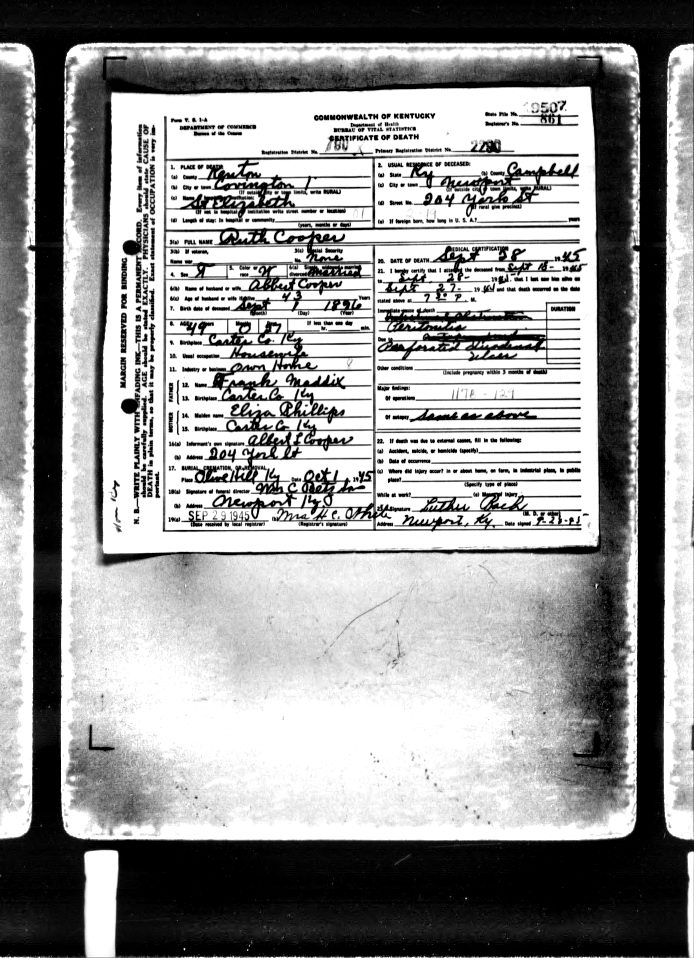 Form V. S. 1-A
DEPARTMENT OF COMMERCE
Bureau of the Census
COMMONWEALTH OF KENTUCKY
Department of Health
BUREAU OF VITAL STATISTICS
CERTIFICATE OF DEATH
State File No. 19507
Registrar's No. 861
Registration District No. Primary Registration District No.
1. PLACE OF DEATH
(a) County Kenton
(b) City or town Covington
(If outside city or town limits, write RURAL)
St Elizabeth
(If not in hospital or institution write street number or location)
(d) Length of stay: In hospital or community
(years, months or days)
2. USUAL RESIDENCE OF DECEASED:
(a) State Ky (b) County Campbell
(c) City or town Newport
(If outside city or town limits, write RURAL)
(d) Street No. 204 York St
(If rural give precinct)
(e) If foreign born, how long in U. S. A.? years
3(a) FULL NAME Ruth Cooper
3(b) If veteran, Name war
3(c) Social Security No. None
4. Sex 5. Color or race W married
6(b) Name of husband or wife Albert Cooper
6(c) Age of husband or wife if alive 43 Years
7. Birth date of deceased Sept 1 1896
(Month) (Day) (Year)
8. AGE 49 0 27 If less than one day hr. min.
9. Birthplace Carter Co. Ky
10. Usual occupation Housewife
11. Industry or business Own Home
FATHER
12. Name Frank Maddix
13. Birthplace Carter Co Ky
MOTHER
14. Maiden name Eliza Phillips
15. Birthplace Carter Co Ky
16(a) Informant's own signature Albert L Cooper
(b) Address 204 York St
17. BURIAL, CREMATION, OR REMOVAL
Place Olive Hill Ky Date Oct 1 1945
18(a) Signature of funeral director
(b) Address Newport Ky
19(a) SEP 29 1945 (b) Mrs H C White
(Date received by local registrar) (Registrar's signature)
MEDICAL CERTIFICATION
20. DATE OF DEATH Sept 28 1945
21. I hereby certify that I attended the deceased from Sept 18- 1945
Sept 28- that I last saw him alive on
Sept 27- and that death occurred on the date
stated above at P. M.
Immediate cause of death
DURATION
Peritonitis
Due to
Perforated Duodenal
Ulcer
Other conditions
(Include pregnancy within 3 months of death)
Major findings:
Of operations
Of autopsy Same as above
22. If death was due to external causes, fill in the following:
(a) Accident, suicide, or homicide (specify)
(b) Date of occurrence
(c) Where did injury occur? in or about home, on farm, in industrial place, in public
place?
(Specify type of place)
While at work? (e) Means of injury
Signature Luther Bach
(M. D. or other)
Address Newport, Ky. Date signed
MARGIN RESERVED FOR BINDING
N. B.—WRITE PLAINLY WITH UNFADING INK—THIS IS A PERMANENT RECORD. Every item of information
should be carefully supplied. AGE should be stated EXACTLY. PHYSICIANS should state CAUSE OF
DEATH in plain terms, so that it may be properly classified. Exact statement of OCCUPATION is very im-
portant.